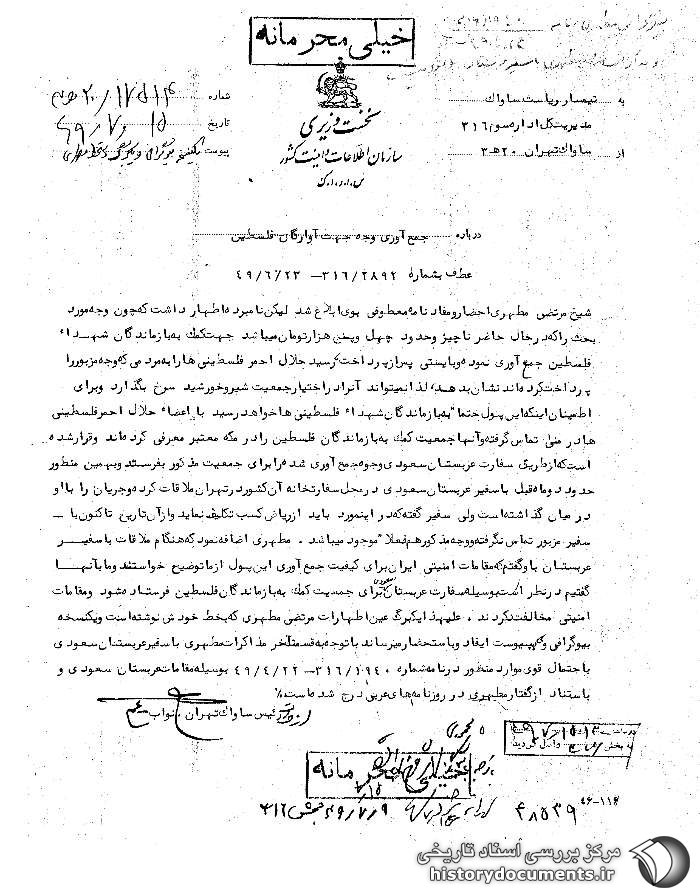 خیلی محرمانه
به تیمسار ریاست ساواک
مدیریت کل اداره سوم ۳۱۶
از ساواک تهران ۲۰ ه‍ ۳
نخست وزیری
سازمان اطلاعات و امنیت کشور
س.ا.و.ا.ک
شماره ۲۰/۱۷۵۱۴ ه‍ ۳
تاریخ ۴۹/۷/۱۵
پیوست
درباره جمع آوری وجه جهت آوارگان فلسطین
عطف بشماره ۳۱۶/۲۸۹۲ – ۴۹/۶/۲۳
شیخ مرتضی مطهری احضار و مفاد نامه معطوفی بوی ابلاغ شد لیکن نامبرده اظهار داشت که چون وجه مورد
بحث را که در حال حاضر ناچیز و حدود چهل و پنج هزار تومان میباشد جهت کمک به بازماندگان شهداء
فلسطین جمع آوری نموده و بایستی پس از پرداخت رسید هلال احمر فلسطینی ها را به مردمی که وجه مزبور را
پرداخت کرده اند نشان بدهد، لذا نمیتواند آنرا در اختیار جمعیت شیر و خورشید سرخ بگذارد و برای
اطمینان اینکه این پول حتما" به بازماندگان شهداء فلسطینی ها خواهد رسید با اعضاء هلال احمر فلسطینی
ها در منی تماس گرفته و آنها جمعیت کمک به بازماندگان فلسطین را در مکه معتبر معرفی کرده اند و قرار شده
است که از طریق سفارت عربستان سعودی وجوه جمع آوری شده را برای جمعیت مذکور بفرستد و بهمین منظور
حدود دو ماه قبل با سفیر عربستان سعودی در محل سفارتخانه آن کشور در تهران ملاقات کرده و جریان را با او
در میان گذاشته است ولی سفیر گفته که در اینمورد باید از ریاض کسب تکلیف نماید و از آن تاریخ تاکنون با
سفیر مزبور تماس نگرفته و وجه مذکور هم فعلا" موجود میباشد . مطهری اضافه نمود که هنگام ملاقات با سفیر
عربستان باو گفتم که مقامات امنیتی ایران برای کیفیت جمع آوری این پول از ما توضیح خواستند و ما بآنها
گفتیم در نظر است بوسیله سفارت عربستان سعودی برای جمعیت کمک به بازماندگان فلسطین فرستاده شود و مقامات
امنیتی مخالفت کردند . علیهذا یکبرگ عین اظهارات مرتضی مطهری که بخط خودش نوشته است و یکنسخه
بیوگرافی وی به پیوست ایفاد و باستحضار میرساند با توجه به قسمت آخر مذاکرات مطهری با سفیر عربستان سعودی
باحتمال قوی موارد منظور در نامه شماره ۳۱۶/۱۹۴۰ – ۴۹/۴/۲۲ بوسیله مقامات عربستان سعودی و
باستناد از گفتار مطهری در روزنامه های عربی درج شده است
رئیس ساواک تهران . نواب
خیلی محرمانه
۴۸۵۳۹
۴۶-۱۱۴
مرکز بررسی اسناد تاریخی
historydocuments.ir